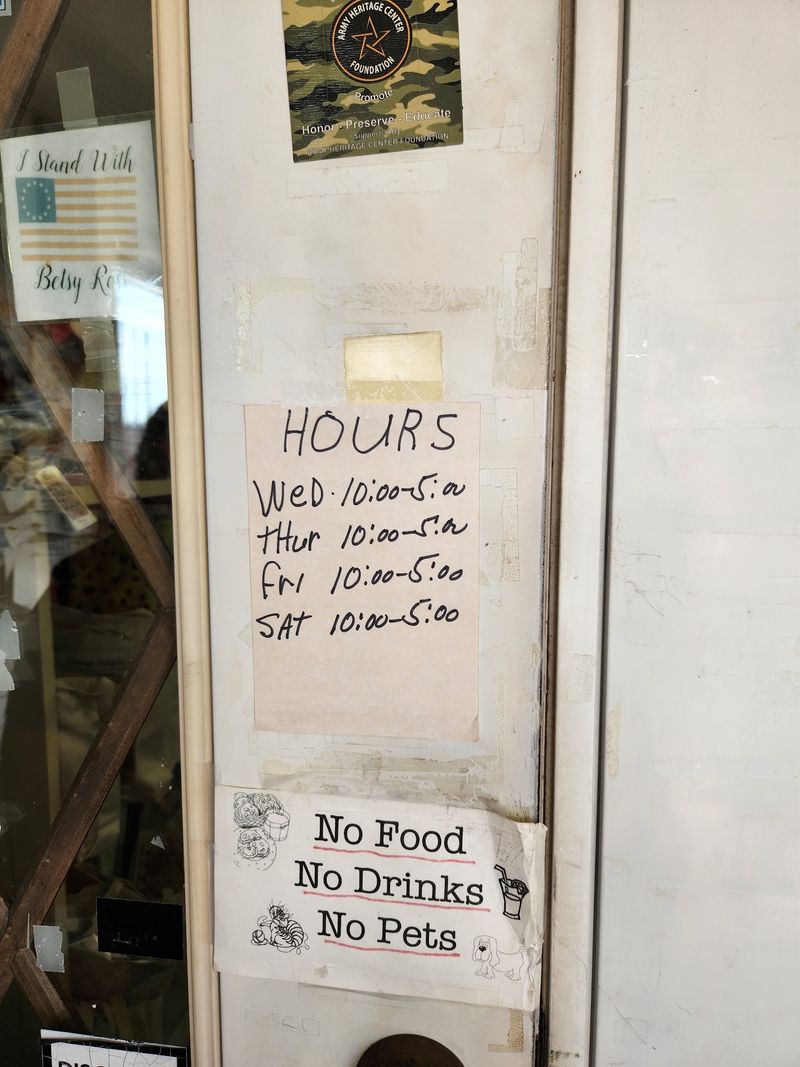 ARMY HERITAGE CENTER
FOUNDATION
Promote
Honor - Preserve - Educate
Supported By
HERITAGE CENTER FOUNDATION
I Stand With
Betsy
HOURS
WED. 10:00-5:00
THur 10:00-5:00
Fri 10:00-5:00
SAT 10:00-5:00
No Food
No Drinks
No Pets